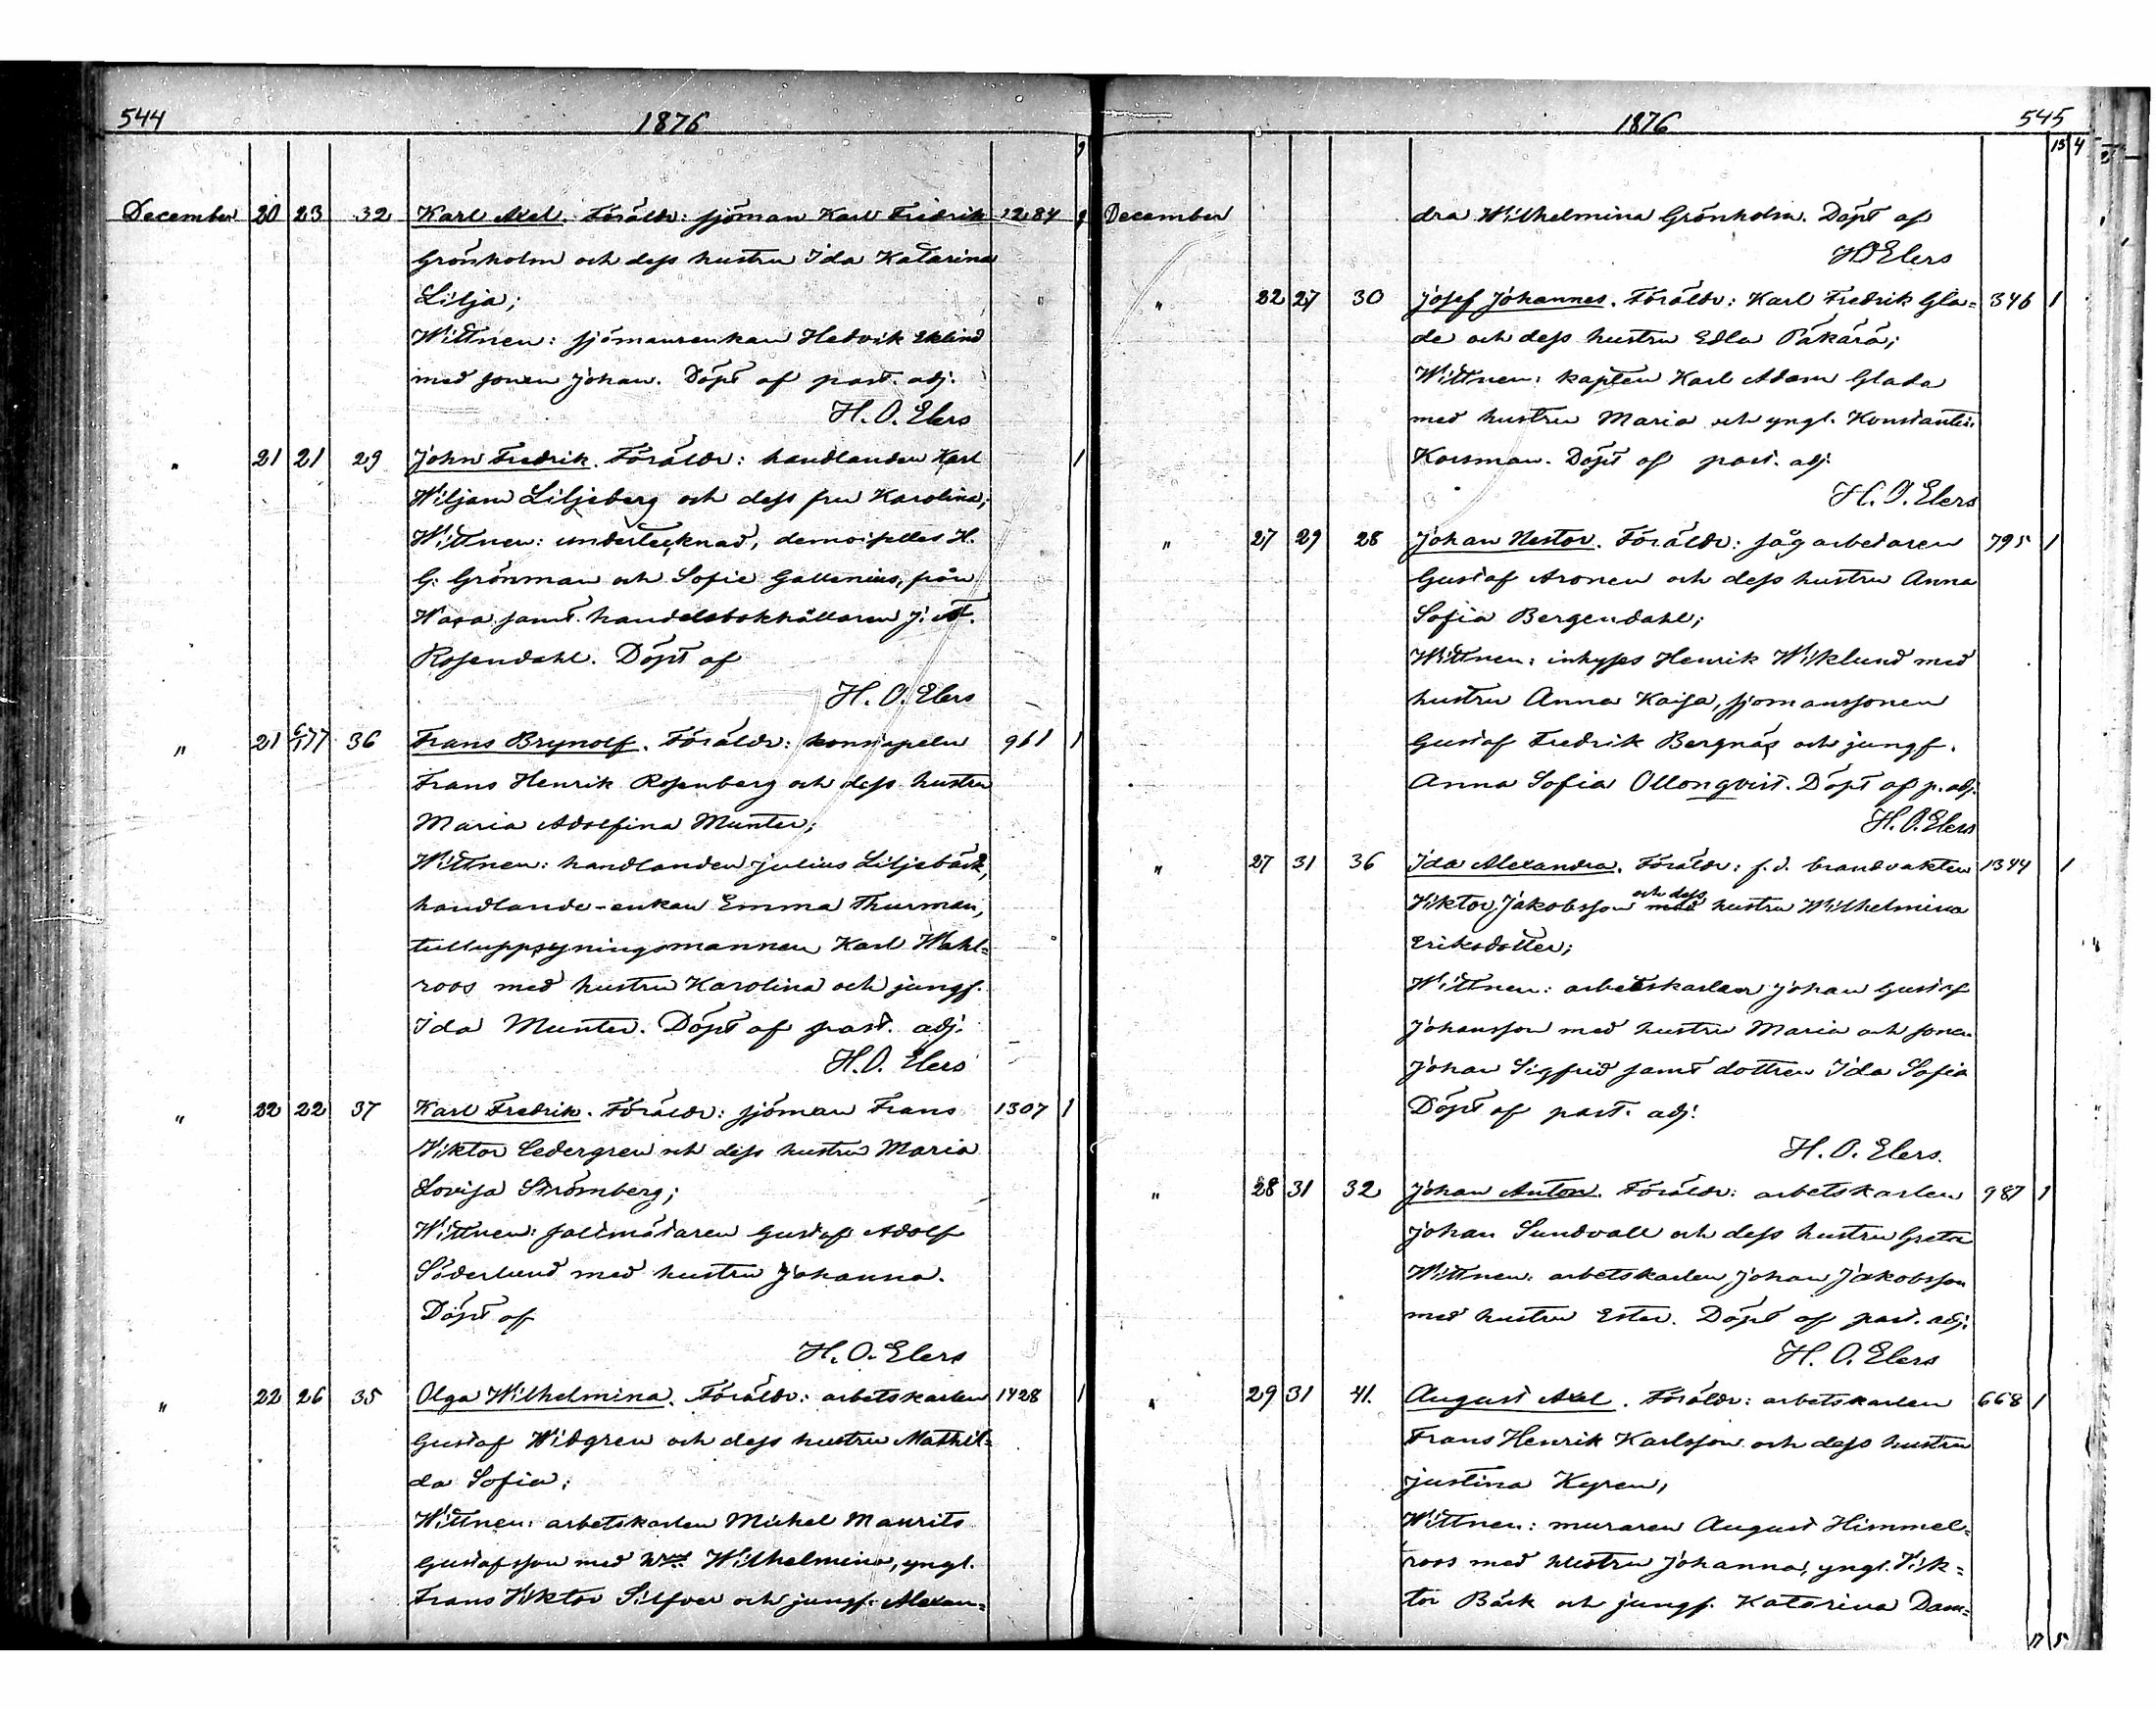 544
1876
December 20 23 32 Karl Axel. Föräldr: sjöman Karl Fredrik 1284
Grönholm och dess hustru Ida Katarina
Lilja;
Wittnen: sjömansenkan Hedvik Eklind
med sonen Johan. Döpt af past. adj.
H. O. Elers
" 21 21 29 John Fredrik. Föräldr: handlanden Karl 1
Wiljam Liljeberg och dess fru Karolina;
Wittnen: undertecknad, demoiselles H.
G. Grönman och Sofie Gallenius, från
Wasa, samt handelsbokhållaren J. A.
Rosendahl. Döpt af
H. O. Elers
" 21 6/1 77 36 Frans Brynolf. Föräldr: konstapeln 961 1
Frans Henrik Rosenberg och dess hustru
Maria Adolfina Munter;
Wittnen: handlanden Julius Liljebäck,
handlande-enkan Emma Thurman,
tulluppsyningsmannen Karl Wahl=
roos med hustru Karolina och jungf.
Ida Munter. Döpt af past. adj.
H. O. Elers
" 22 22 37 Karl Fredrik. Föräldr: sjöman Frans 1307 1
Viktor Cedergren och dess hustru Maria
Lovisa Strömberg;
Wittnen: saltmätaren Gustaf Adolf
Söderlund med hustru Johanna.
Döpt af
H. O. Elers
" 22 26 35 Olga Wilhelmina. Föräldr: arbetskarlen 1428 1
Gustaf Widgren och dess hustru Mathil=
da Sofia;
Wittnen: arbetskarlen Mickel Maurits
Gustafsson med Wilhelmina, yngl.
Frans Viktor Silfver och jungf. Alexan=
1876
545
13 4
December dra Wilhelmina Grönholm. Döpt af
HOElers
" 22 27 30 Josef Johannes. Föräldr: Karl Fredrik Gla= 346 1
de och dess hustru Edla Päkärä;
Wittnen: kapten Karl Adam Glada
med hustru Maria och yngl. Konstantin
Korsman. Döpt af past. adj.
H. O. Elers
" 27 29 28 Johan Nestor. Föräldr: sågarbetaren 795 1
Gustaf Aronen och dess hustru Anna
Sofia Bergendahl;
Wittnen: inhyses Henrik Wiklund med
hustru Anna Kaisa, sjömanssonen
Gustaf Fredrik Bergnäs och jungf.
Anna Sofia Ollonqvist. Döpt af p. adj.
H. O. Elers
" 27 31 36 Ida Alexandra. Föräldr: f. d. brandvakten 1344 1
Viktor Jakobsson och dess med hustru Wilhelmina
Eriksdotter;
Wittnen: arbetskarlen Johan Gustaf
Johansson med hustru Maria och sonen
Johan Sigfrid samt dottren Ida Sofia
Döpt af past. adj.
H. O. Elers.
" 28 31 32 Johan Anton. Föräldr: arbetskarlen 987 1
Johan Sundvall och dess hustru Greta
Wittnen: arbetskarlen Johan Jakobsson
med hustru Ester. Döpt af past. adj.
H. O. Elers
" 29 31 41. August Axel. Föräldr: arbetskarlen 668 1
Frans Henrik Karlsson och dess hustru
Justina Kyren;
Wittnen: muraren August Himmel=
roos med hustru Johanna, yngl. Vik=
tor Bäck och jungf. Katarina Dam=
17 5